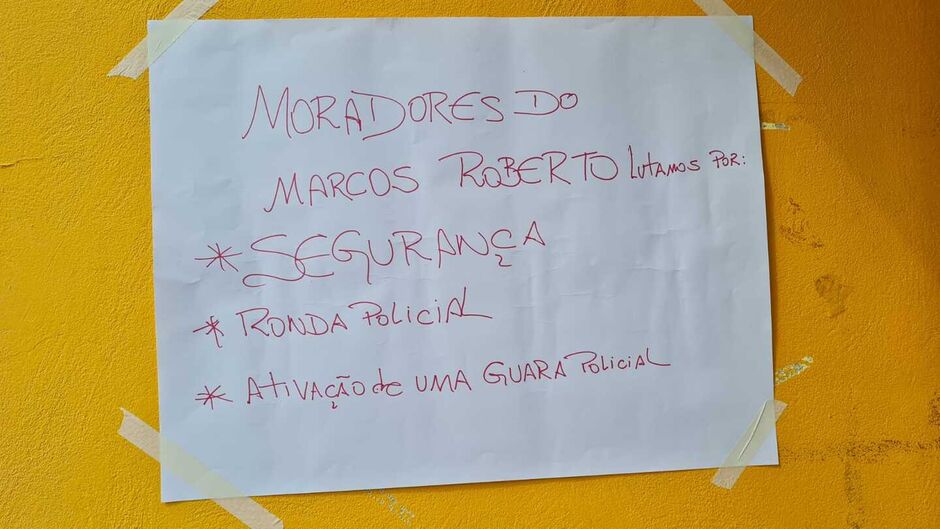 MORADORES DO
MARCOS ROBERTO LUTAMOS POR:
* SEGURANÇA
* RONDA POLICIAL
* ATIVAÇÃO de UMA GUARA POLICIAL